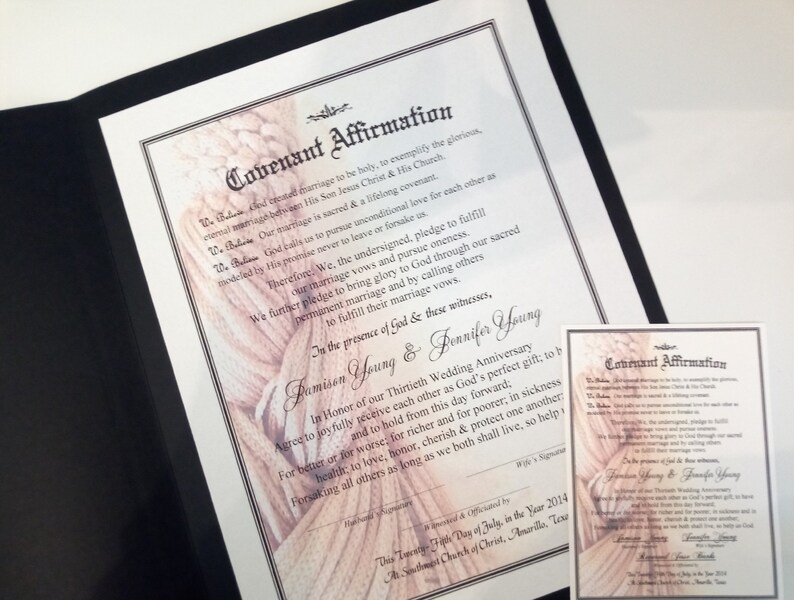 Covenant Affirmation
We Believe God created marriage to be holy, to exemplify the glorious,
eternal marriage between His Son Jesus Christ & His Church.
We Believe Our marriage is sacred & a lifelong covenant.
We Believe God calls us to pursue unconditional love for each other as
modeled by His promise never to leave or forsake us.
Therefore, We, the undersigned, pledge to fulfill
our marriage vows and pursue oneness.
We further pledge to bring glory to God through our sacred
permanent marriage and by calling others
to fulfill their marriage vows.
In the presence of God & these witnesses,
Jamison Young & Jennifer Young
In Honor of our Thirtieth Wedding Anniversary
Agree to joyfully receive each other as God's perfect gift; to h
and to hold from this day forward;
For better or for worse; for richer and for poorer; in sickness
health; to love, honor, cherish & protect one another;
Forsaking all others as long as we both shall live, so help
Husband's Signature
Wife's Signatur
Witnessed & Officiated by
This Twenty-Fifth Day of July, in the Year 2014
At Southwest Church of Christ, Amarillo, Texa
Covenant Affirmation
We Believe God created marriage to be holy, to exemplify the glorious,
eternal marriage between His Son Jesus Christ & His Church.
We Believe Our marriage is sacred & a lifelong covenant.
We Believe God calls us to pursue unconditional love for each other as
modeled by His promise never to leave or forsake us.
Therefore, We, the undersigned, pledge to fulfill
our marriage vows and pursue oneness.
We further pledge to bring glory to God through our sacred
permanent marriage and by calling others
to fulfill their marriage vows.
In the presence of God & these witnesses,
Jamison Young & Jennifer Young
In Honor of our Thirtieth Wedding Anniversary
Agree to joyfully receive each other as God's perfect gift, to have
and to hold from this day forward;
For better or for worse, for richer and for poorer, in sickness and in
health; to love, honor, cherish & protect one another;
Forsaking all others as long as we both shall live, so help us God.
Jamison Young Jennifer Young
Husband's Signature Wife's Signature
Witnessed & Officiated by
This Twenty-Fifth Day of July, in the Year 2014
At Southwest Church of Christ, Amarillo, Texas